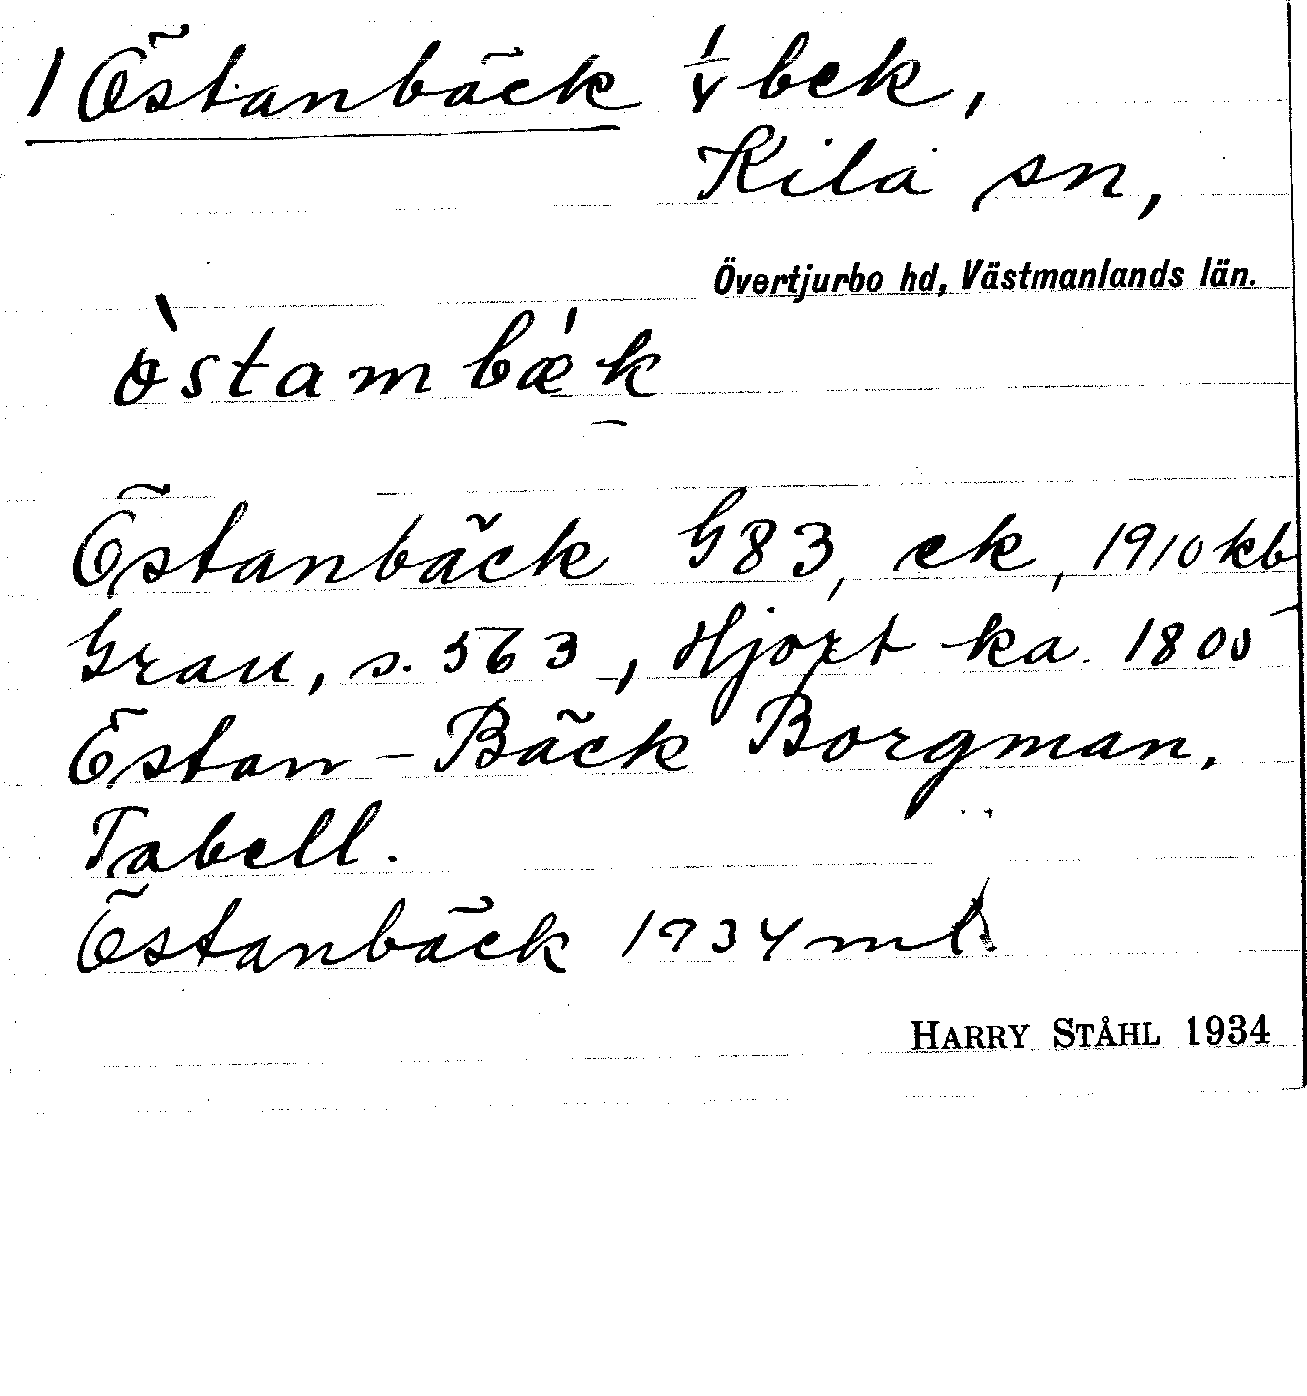 1 Östanbäck 1/4 bek,
Kila sn,
Övertjurbo hd, Västmanlands län.
östambæk
Östanbäck G83, ek, 1910 kb
Grau, s. 563, Hjort ka. 1800
Östan-Bäck Borgman,
Tabell.
Östanbäck 1934 ml
HARRY STÅHL 1934